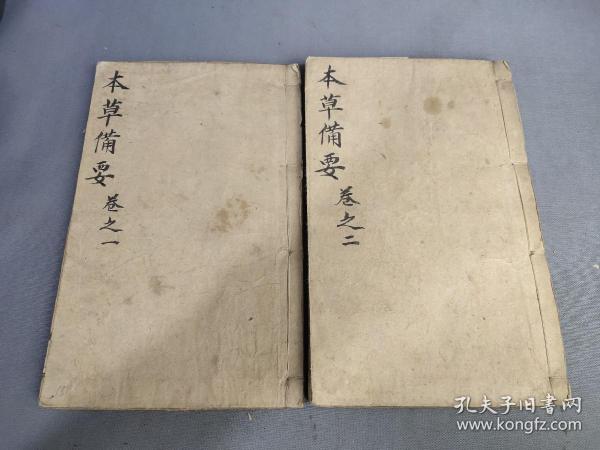 本草備要 卷之一
本草備要 卷之二
孔夫子旧書网
www.kongfz.com